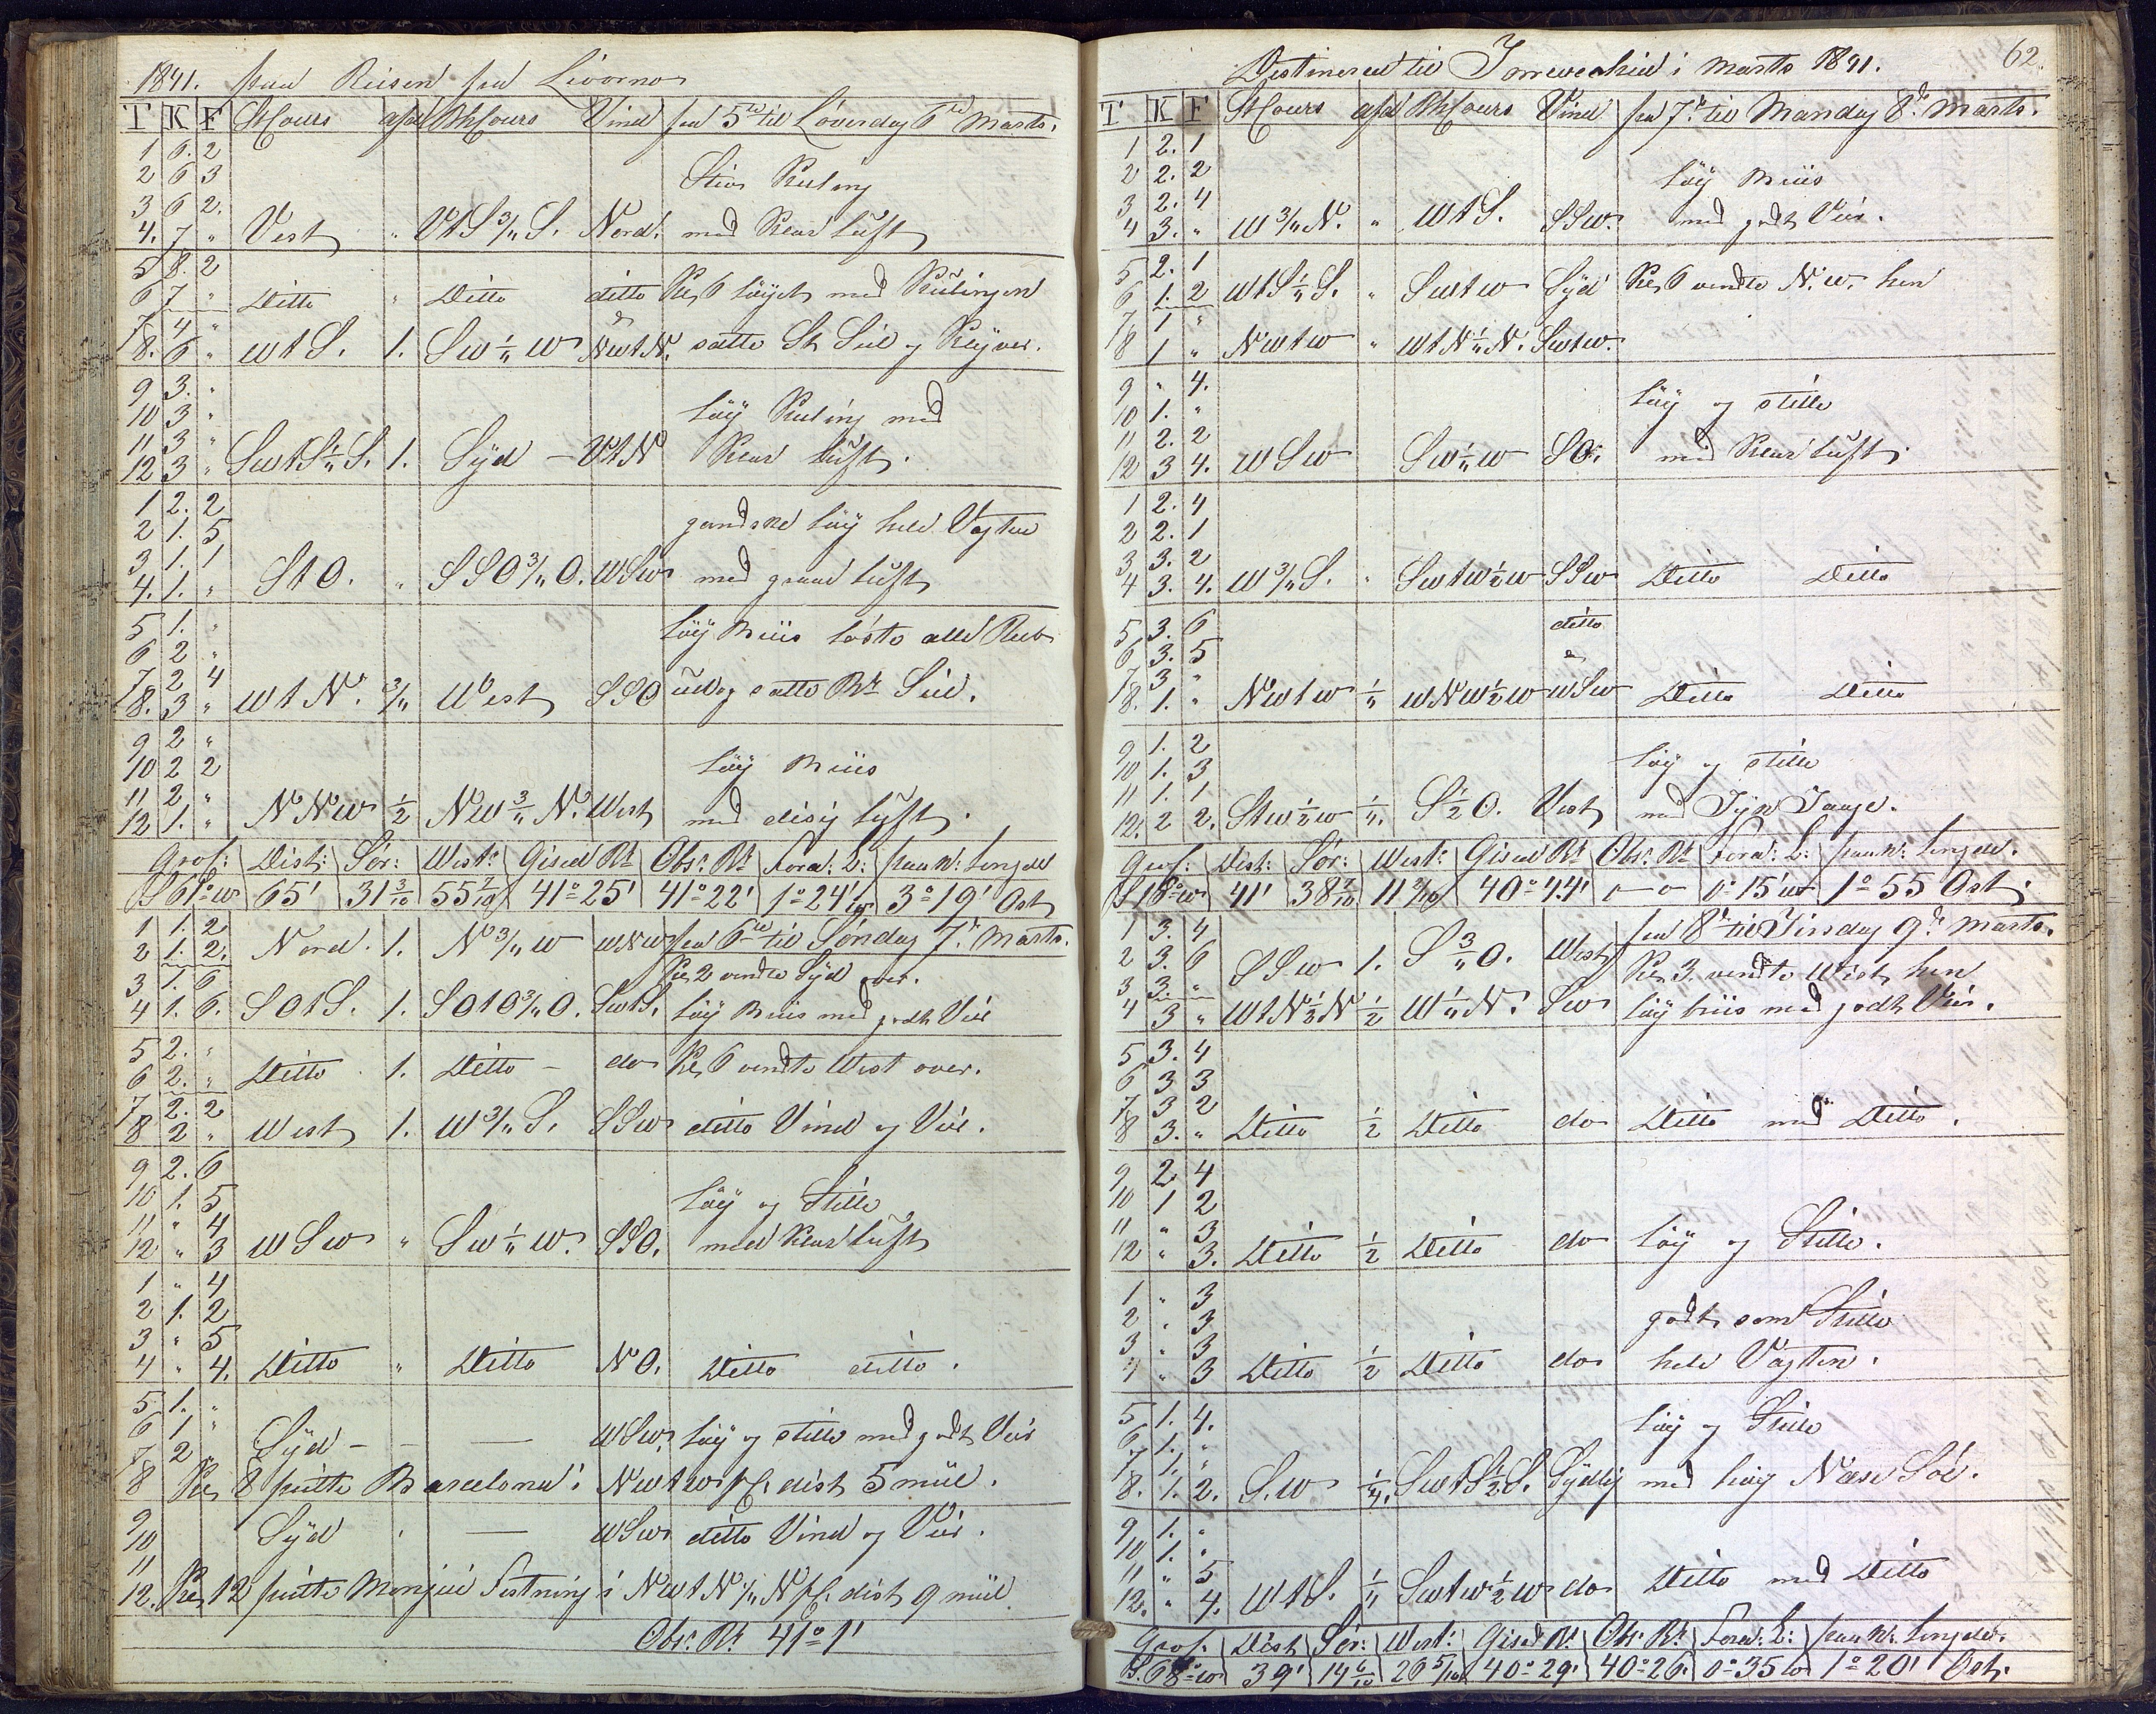 1841. paa Reisen fra Livorno
T K F St Cours afd Rt Cours Vind fra 5te til Löverdag 6te Marts.
1 6. 2
2 6 3 Stiv Kuling
3 6 2.
4. 7 " Vest " VtS 3/4 S. Nord. med Klar Luft
5 8. 2
6 7 " Ditto " Ditto ditto Kl 6 löyet med Kulingen
7 4 "
8. 6 " WtS. 1. SW 1/4 W NWtN. satte St Seil og Klyver.
9 3. "
10 3 " Löy Kuling med
11 3 "
12 3 " SWtS 1/4 S. 1. Syd – VtN Klar Luft.
1 2. 2
2 1. 5 gandske löy hele Vagten
3 1. 1
4. 1. " StO. " SSO 3/4 O. WSW med graae Luft
5 1. " Löy Briis löste alle Reb
6 2 "
7 2 4
8. 3 " WtN. 3/4 West SSO ud og satte Br. Seil.
9 2 "
10 2 2 Löy Briis
11 2 "
12 1. " NNW 1/2 NW 3/4 N. West med disig Luft.
Giss: Dist: Sör: West: Gised Bt Obsr. Bt. Forå: L: paa W: Lengde
S 61° W 65' 31 3/10 55 7/10 41° 25' 41° 22' 1° 24' W 3° 19' Ost
1 1. 2
2 1. 2. Nord. 1. N 3/4 W WNW fra 6te til Söndag 7de Marts.
3 1. 6 Kl 2 vendte Syd over.
4 1. 6. SOtS. 1. SOtO 3/4 O. SWtS. Löy Briis med godt Veir
5 2. "
6 2. " Ditto 1. Ditto – do Kl 6 vendte West over.
7 2. 2
8 2 " West 1. W 3/4 S. SSW ditto Vind og Veir.
9 2. 6
10 1. 5 Löy og Stille
11 " 4
12 " 3 WSW " SW 1/4 W. SSO. med Klar Luft
1 " 4
2 1. 2
3 " 5
4 " 4. Ditto " Ditto NO. Ditto ditto.
5 1. "
6 1 " Syd – – WSW. Löy og Stille med godt Veir
7 2 "
8 Kl 8 peilte Barcelona i NWtW pC. dist 5 miil.
9
10 Syd – WSW ditto Vind og Veir.
11
12. Kl 12 peilte Monjui Festning i NWtN 1/4 N pC. dist 9 miil.
Obsr. Bt. 41° 1'
Destinered til Immerwahid i Marts 1841. 62.
T K F St Cours afd Rt Cours Vind fra 7de til Mandag 8de Marts.
1 2. 1
2 2. 2 Löy Briis
3 2. 4
4 3. " W 3/4 N. " WtS. SSW. med godt Veir.
5 2. 1
6 1. 2 WtS 1/4 S. " SWtW Syd Kl 6 vendte N.W. hen
7 1 "
8 1 " NWtW " WtN 1/4 N. SWtW.
9 " 4.
10 1. " Löy og Stille
11 2. 2
12 3 4. WSW SW 1/4 W SO. med Klar Luft.
1 2. 4
2 2. 1
3 3. 2
4 3. 4. W 3/4 S. " SWtW 1/2 W SSW Ditto Ditto
5 3. 6 ditto
6 3. 5
7 3 "
8. 1. " NWtW 1/4 WNW 1/2 W WSW Ditto Ditto
9 1. 2
10 1. 3 Löy og Stille
11 1. 1
12. 2 2. StW 1/2 W 1/4. S 1/2 O. Vest med Tyk Taage.
Giss: Dist: Sör: West: Gised Bt Obsr. Bt Forå: L: paa W: Lengde.
S 18° W 41' 38 7/10 11 9/10 40° 44' — 0° 15' W 1° 55 Ost.
1 3. 4 fra 8de til Tirsdag 9de Marts.
2 3. 6 SSW 1. S 3/4 O. West Kl 3 vendte West hen
3 3. "
4 3 " WtN 1/2 N 1/2 W 1/4 N. SW Löy briis med godt Veir.
5 3. 4
6 3 3
7 3 2
8 3. " Ditto 1/2 Ditto do Ditto med Ditto.
9 2 4
10 1 2
11 " 3
12 " 3. Ditto 1/2 Ditto do Löy og Stille.
1 " 3
2 " 3 godt som Stille
3 " 3
4 " 3 Ditto 1/2 Ditto do hele Vagten.
5 1. 4. Löy og Stille
6 1. "
7 1. "
8. 1. 2. S.W 1/4. SWtS 1/2 S. Sydlig med höy Söe.
9 1. "
10 1. "
11 " 5
12. " 4. WtS. 1/4 SWtW 1/2 W do Ditto med Ditto
Giss: Dist Sör: West: Gised Bt Obsr. Bt. Forå: L: paa W: Lengde.
S. 68° W 39' 14 6/10 26 5/10 40° 29' 40° 26' 0° 35 W 1° 20' Ost.